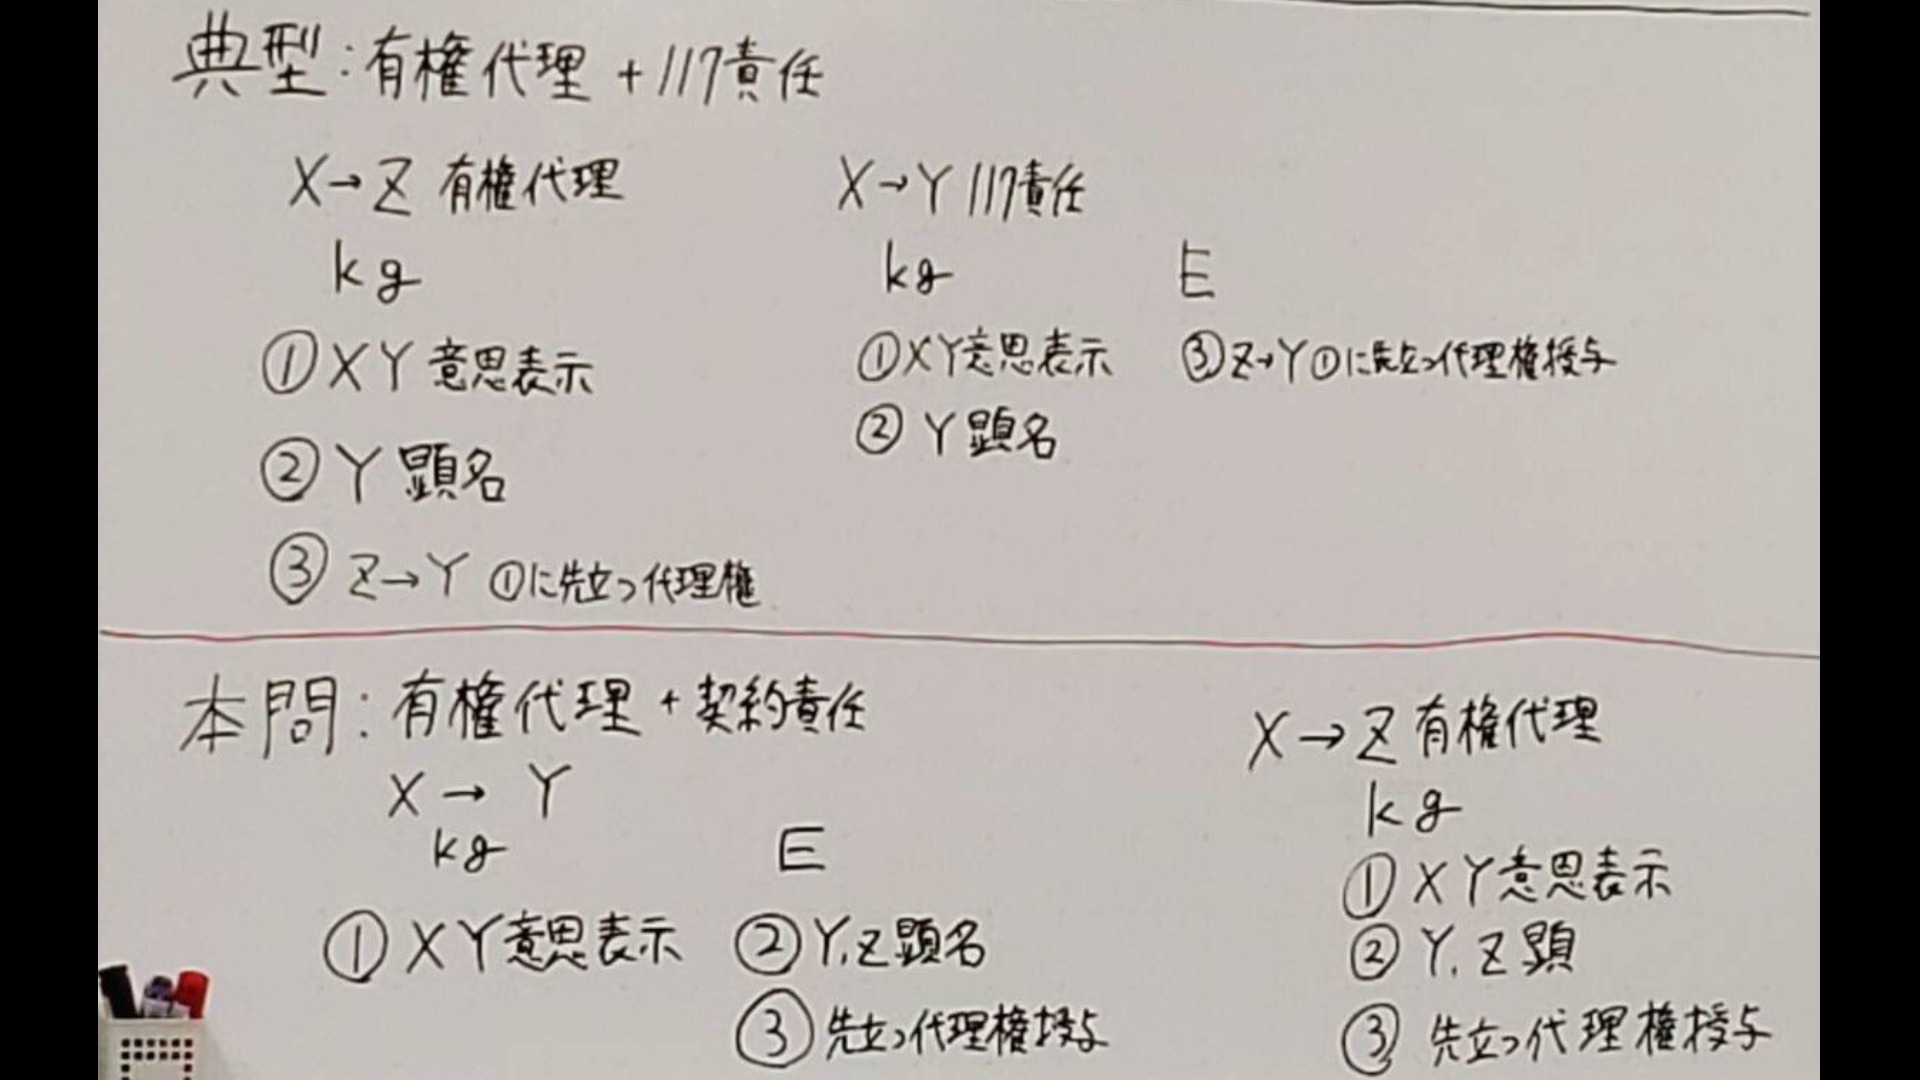 典型:有権代理+117責任
X→Z 有権代理
kg
①XY意思表示
②Y顕名
③Z→Y ①に先立つ代理権
X→Y 117責任
kg
E
①XY意思表示
③Z→Y①に先立つ代理権授与
②Y顕名
本問:有権代理+契約責任
X→Y
kg
E
①XY意思表示
②Y,Z顕名
③先立つ代理権授与
X→Z有権代理
kg
①XY意思表示
②Y,Z顕
③先立つ代理権授与